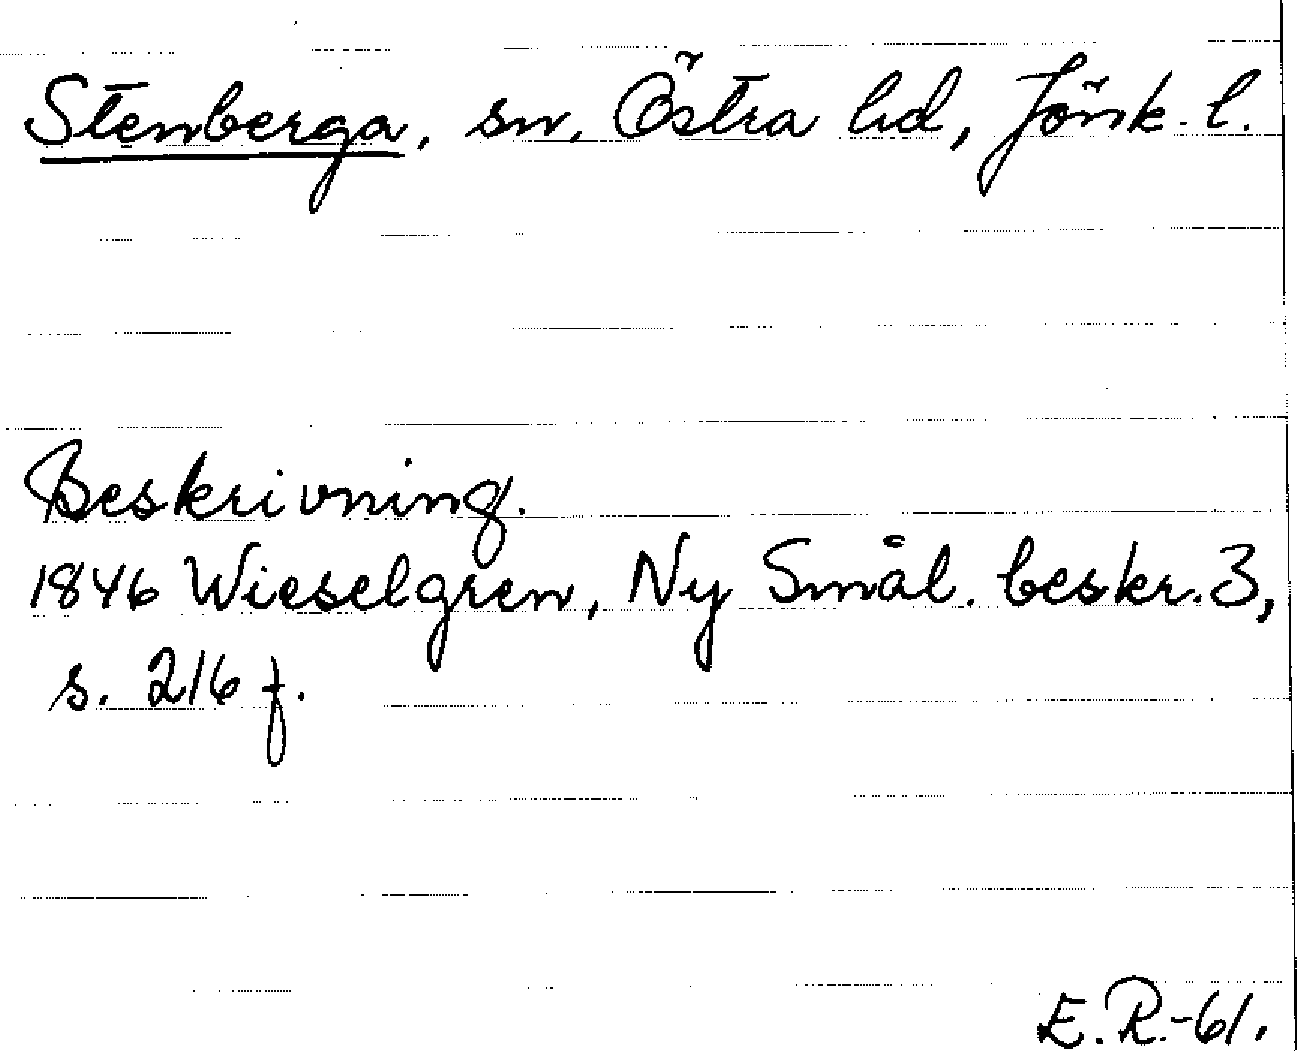 Stenberga, sn, Östra hd, Jönk. l.
Beskrivning.
1846 Wieselgren, Ny Smål. beskr. 3,
s. 216 f.
E. R.-61.